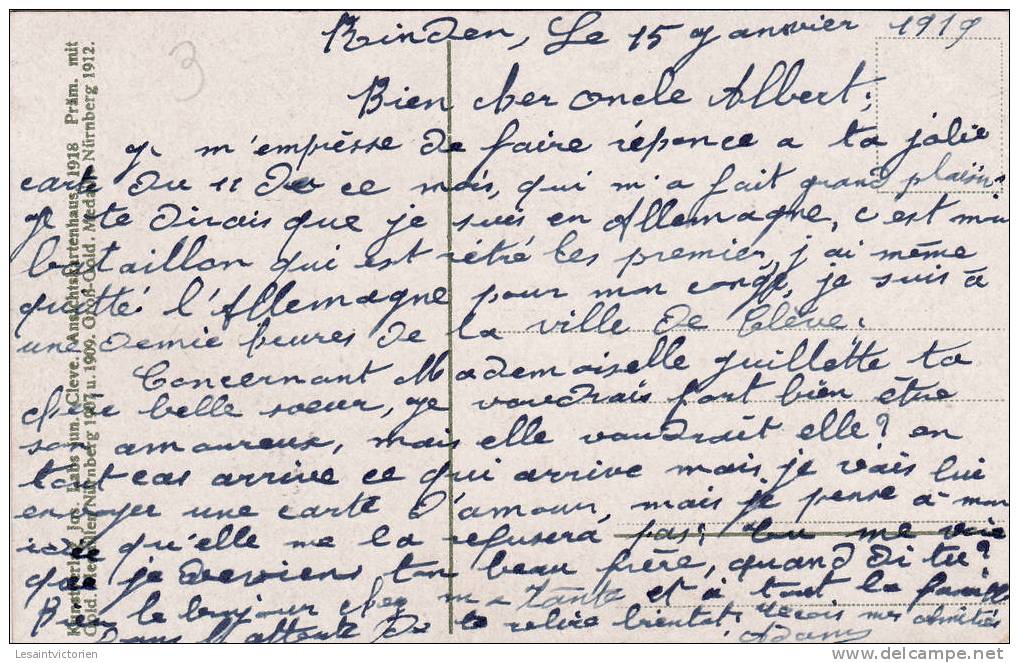 Rinden, Le 15 Janvier 1919
Bien cher oncle Albert;
Je m'empèsse de faire réponce a ta jolie
carte du 11 de ce mois, qui m'a fait grand plaisir.
Je te dirais que je suis en Allemagne, c'est mon
bataillon qui est rétré les premier, j'ai même
quitté l'Allemagne pour mon congé, je suis à
une demie heures de la ville de Clève.
Concernant Mademoiselle Juillette ta
chère belle soeur, je voudrais fort bien être
son amoureux, mais elle voudrait elle? en
tout cas arrive ce qui arrive mais je vais lui
envoyer une carte d'amour, mais je pense à mon
idée qu'elle me la refusera pas; tu me vois
que je deviens ton beau frère, quand di tu?
Bien le bonjour chez ma tante et à tout la famille
Dans l'attente de te relire bientot; reçois mes amitiés
Adam
3
Kunstverlag Jos. jun. Cleve, Ansichtskartenhaus, 1918 Präm. mit
Gold. Medaillen Nürnberg 1907 u. 1909. Groß-Gold. Medaille Nürnberg 1912.
Lesaintvictorien
delcampe.net